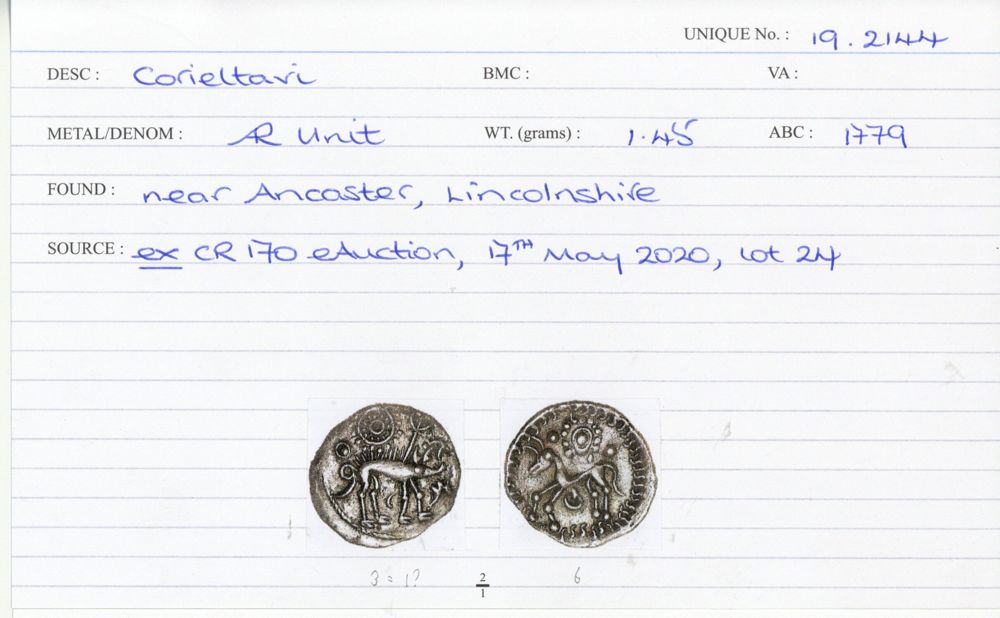 UNIQUE No. : 19.2144
DESC : Corieltavi BMC : VA :
METAL/DENOM : AR Unit WT. (grams) : 1.45 ABC : 1779
FOUND : near Ancaster, Lincolnshire
SOURCE : ex CR 170 eAuction, 17TH May 2020, lot 24
3 = 1? 2/1 6